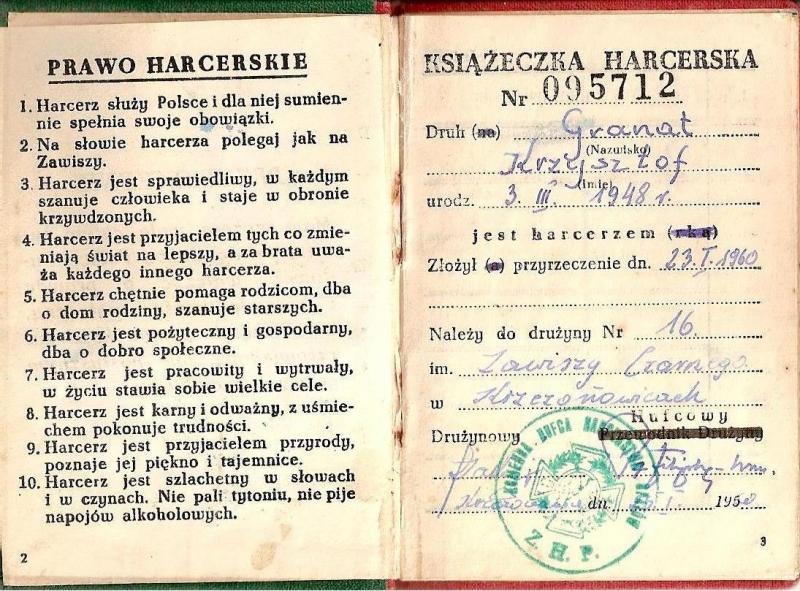 PRAWO HARCERSKIE
1. Harcerz służy Polsce i dla niej sumien-
nie spełnia swoje obowiązki.
2. Na słowie harcerza polegaj jak na
Zawiszy.
3. Harcerz jest sprawiedliwy, w każdym
szanuje człowieka i staje w obronie
krzywdzonych.
4. Harcerz jest przyjacielem tych co zmie-
niają świat na lepszy, a za brata uwa-
ża każdego innego harcerza.
5. Harcerz chętnie pomaga rodzicom, dba
o dom rodziny, szanuje starszych.
6. Harcerz jest pożyteczny i gospodarny,
dba o dobro społeczne.
7. Harcerz jest pracowity i wytrwały,
w życiu stawia sobie wielkie cele.
8. Harcerz jest karny i odważny, z uśmie-
chem pokonuje trudności.
9. Harcerz jest przyjacielem przyrody,
poznaje jej piękno i tajemnice.
10. Harcerz jest szlachetny w słowach
i w czynach. Nie pali tytoniu, nie pije
napojów alkoholowych.
2
KSIĄŻECZKA HARCERSKA
Nr 095712
Druh (na) Granat
(Nazwisko)
Krzysztof
(Imię)
urodz. 3. III 1948 r.
jest harcerzem (rką)
Złożył (a) przyrzeczenie dn. 23.I.1960
Należy do drużyny Nr 16
im. Zawiszy Czarnego
w Krzczonowicach
Hufcowy
Drużynowy Przewodnik Drużyny
dn. 195
KOMENDA HUFCA
Z. H. P.
3